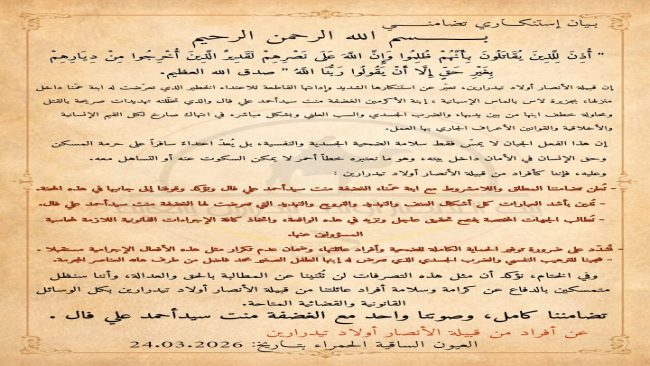 بيان إستنكاري تضامنـــي
بـــسم الله الرحمن الرحيم
" أُذِنَ لِلَّذِينَ يُقَاتَلُونَ بِأَنَّهُمْ ظُلِمُوا وَإِنَّ اللَّهَ عَلَى نَصْرِهِمْ لَقَدِيرٌ الَّذِينَ أُخْرِجُوا مِنْ دِيَارِهِمْ
بِغَيْرِ حَقٍّ إِلَّا أَنْ يَقُولُوا رَبُّنَا اللَّهُ " صدق الله العظيم.
إن قبيلة الأنصار أولاد تيدرارين، تعبّر عن استنكارها الشديد وإدانتها القاطعة للاعتداء الخطير الذي تعرضت له ابنة عمنا داخل
منزلها، بجزيرة لاس بالماس الإسبانية ، إبنة الأكرمين الغضفة منت سيدأحمد علي فال والذي تخللته تهديدات صريحة بالقتل
ومحاولة خطف ابنها من بين يديها، والضرب الجسدي والسب العلني وبشكل مباشر، في انتهاك صارخ لكل القيم الإنسانية
والأخلاقية والقوانين الأعراف الجاري بها العمل.
إن هذا الفعل الجبان لا يمسّ فقط سلامة الضحية الجسدية والنفسية، بل يُعدّ اعتداءً سافراً على حرمة المسكن
وحق الإنسان في الأمان داخل بيته، وهو ما نعتبره خطاً أحمر لا يمكن السكوت عنه أو التساهل معه.
وعليه، فإننا كأفراد من قبيلة الأنصار أولاد تيدرارين :
- نُعلن تضامننا المطلق واللامشروط مع ابنة عمّنا، الغضفة منت سيدأحمد علي فال ونؤكد وقوفنا إلى جانبها في هذه المحنة.
- نُدين بأشد العبارات كل أشكال العنف والتهديد والترويع والتهديد التي تعرضت لها الغضفة منت سيدأحمد علي فال.
- نُطالب الجهات المختصة بفتح تحقيق عاجل ونزيه في هذه الواقعة، واتخاذ كافة الإجراءات القانونية اللازمة لمحاسبة
المسؤولين عنها.
- نُشدّد على ضرورة توفير الحماية الكاملة للضحية وأفراد عائلتها، وضمان عدم تكرار مثل هذه الأفعال الإجرامية مستقبلا .
- الترهيب النفسي والضرب الجسدي الذي تعرض له إبنها الطفل الصغير محمد فاضل من طرف هاته العناصر المجرمة.
وفي الختام، نؤكد أن مثل هذه التصرفات لن تُثنينا عن المطالبة بالحق والعدالة، وأننا سنظل
متمسكين بالدفاع عن كرامة وسلامة أفراد عائلتنا من قبيلة الأنصار أولاد تيدرارين بكل الوسائل
القانونية والقضائية المتاحة.
تضامننا كامل، وصوتنا واحد مع الغضفة منت سيدأحمد علي فال .
عن أفراد من قبيلة الأنصار أولاد تيدرارين
العيون الساقية الحمراء بتاريخ: 24.03.2026